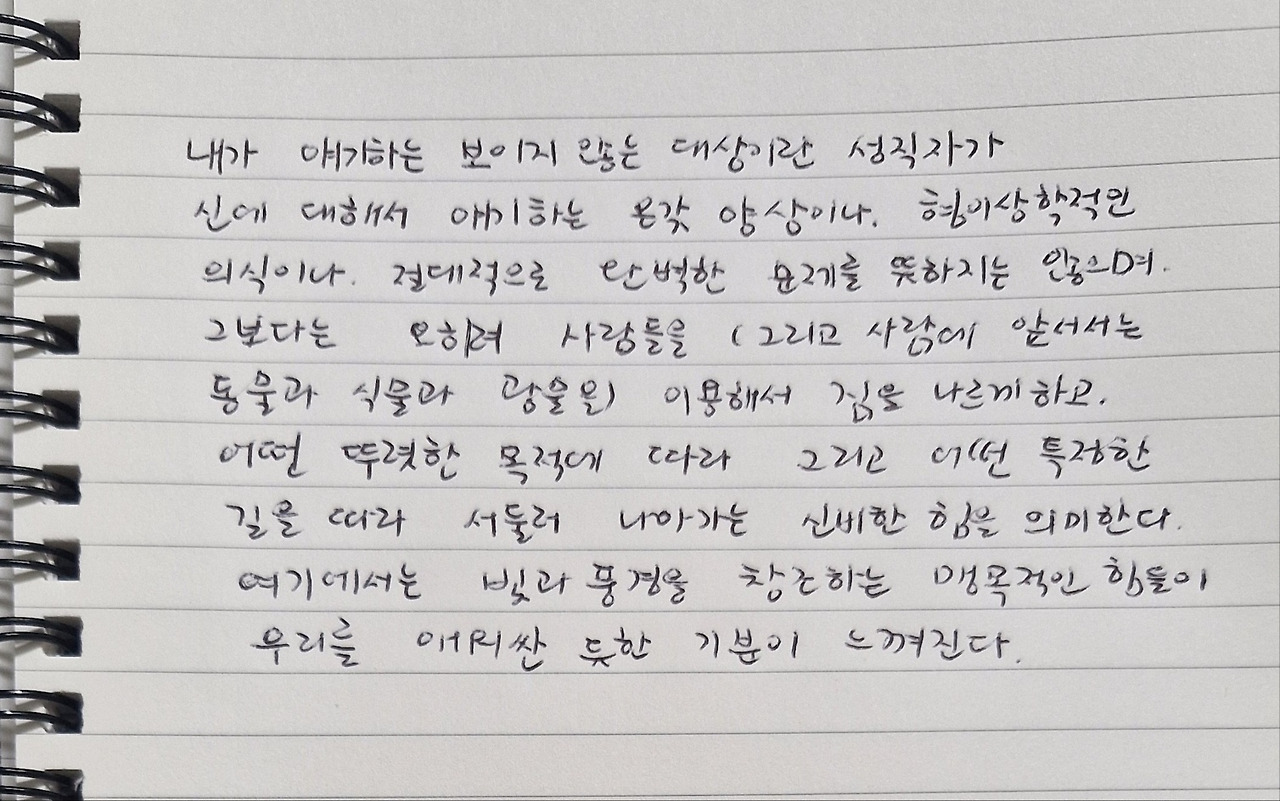 내가 얘기하는 보이지 않는 대상이란 성직자가
신에 대해서 얘기하는 온갖 양상이나. 형이상학적인
의식이나. 절대적으로 완벽한 문제를 뜻하지는 않으며.
그보다는 오히려 사람들을 (그리고 사람에 앞서서는
동물과 식물과 광물을) 이용해서 짐을 나르게하고.
어떤 뚜렷한 목적에 따라 그리고 어떤 특정한
길을 따라 서둘러 나아가는 신비한 힘을 의미한다.
여기에서는 빛과 풍경을 창조하는 맹목적인 힘들이
우리를 에워싼 듯한 기분이 느껴진다.